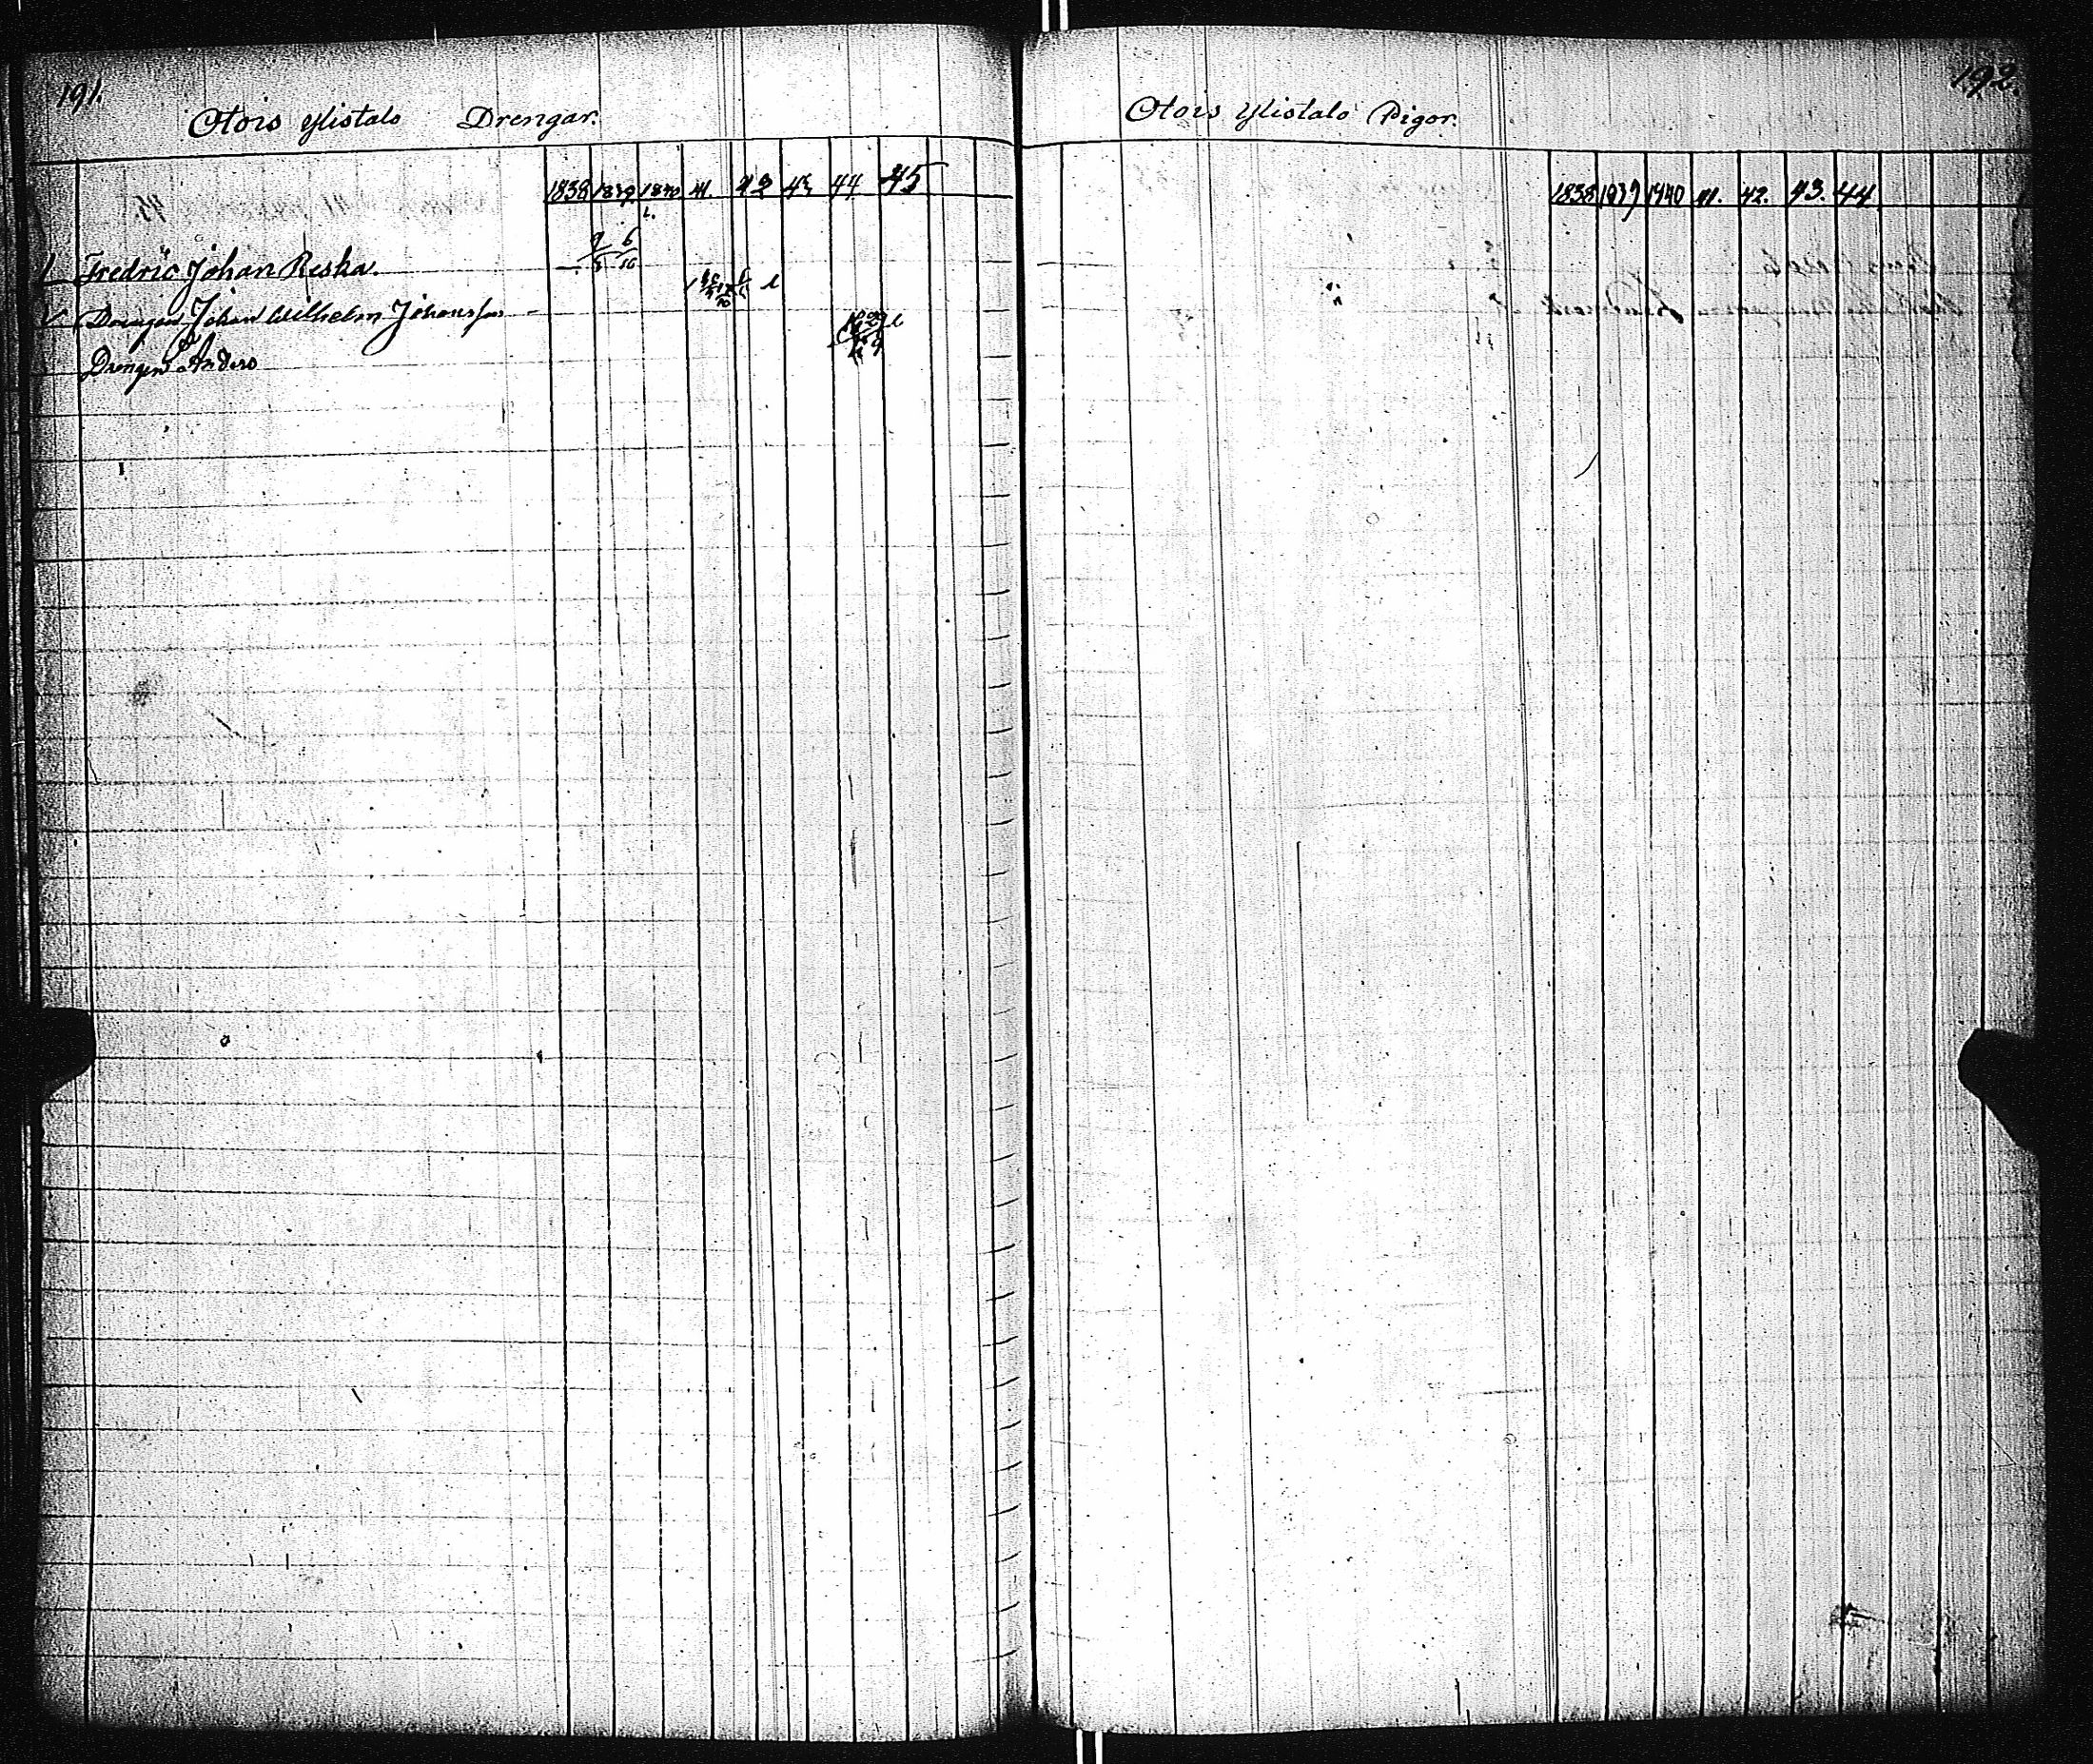 191.
Otois Ylistalo Drengar.
1838 1839. 1840. 41. 42 43 44 45
1. Fredric Johan Reska.
9 6
5 16
Drengen Johan Wilhelm Johansson
Drengen Anders
192.
Otois Ylistalo Pigor.
1838 1839 1840 41. 42. 43. 44